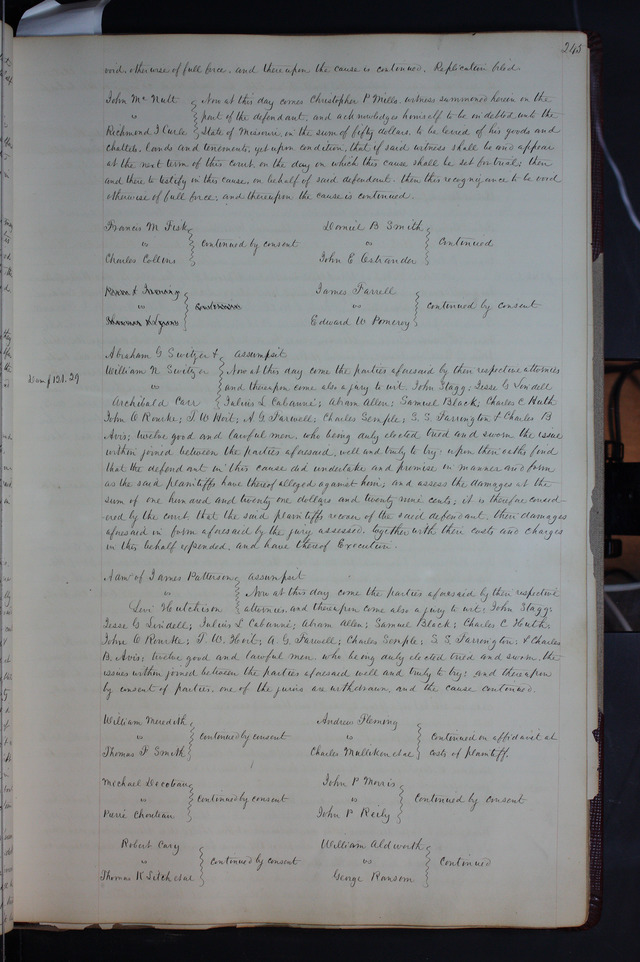 245
void, otherwise of full force, and thereupon the cause is continued. Replication filed.
John McNutt
vs
Richmond J Curle
Now at this day comes Christopher P Mills, witness summoned herein on the
part of the defendant, and acknowledges himself to be indebted unto the
State of Missouri, in the sum of fifty dollars, to be levied of his goods and
chattels, lands and tenements, yet upon condition, that if said witness shall be and appear
at the next term of this court, on the day on which this cause shall be set for trial; then
and there to testify in this cause, on behalf of said defendant, then this recognizance to be void
otherwise of full force; and thereupon the cause is continued.
Francis M Fisk
vs
Charles Collins
continued by consent
Daniel B Smith
vs
John E Ostrander
Continued
vs
James Farrell
vs
Edward W Pomeroy
continued by consent
Dam$ 121.29
Abraham G Switzer &
William N Switzer
vs
Archibald Carr
assumpsit
Now at this day come the parties aforesaid by their respective attornies
and thereupon come also a jury to wit, John Stagg; Jesse G Lindell
Julius L Cabanné; Abram Allen; Samuel Black; Charles C Huth
John O Rourke; T. W Hoit; A. G. Farwell; Charles Semple; S. S. Farrington & Charles B
Avis; twelve good and lawful men, who being duly elected tried and sworn the issue
within joined between the parties aforesaid, well and truly to try; upon their oaths find
that the defendant in this cause did undertake and promise in manner and form
as the said plaintiffs have thereof alleged against him; and assess the damages at the
sum of one hundred and twenty one dollars and twenty nine cents; it is therefore consid-
-ered by the court, that the said plaintiffs recover of the said defendant, their damages
aforesaid in form aforesaid by the jury assessed, together with their costs and charges
in this behalf expended, and have thereof Execution.
Adm'r of James Patterson
vs
Levi Hutchison
assumpsit
Now at this day come the parties aforesaid by their respective
attornies, and thereupon come also a jury to wit; John Stagg;
Jesse G Lindell; Julius L Cabanné; Abram Allen; Samuel Black; Charles C Huth;
John O Rourke; T. W. Hoit; A. G. Farwell; Charles Semple; S. S. Farrington; & Charles
B. Avis; twelve good and lawful men, who being duly elected tried and sworn, the
issues within joined between the parties aforesaid well and truly to try; and thereupon
by consent of parties, one of the jurors are withdrawn, and the cause continued.
William Meredith
vs
Thomas F Smith
continued by consent
Andrew Fleming
vs
Charles Mulliken et al
Continued on affidavit at
costs of plaintiff.
Michael
vs
Pierre Chouteau
continued by consent
John P Morris
vs
John P Reily
Continued by consent
Robert Cary
vs
Thomas K et al
continued by consent
William Aldworth
vs
George Ransom
Continued